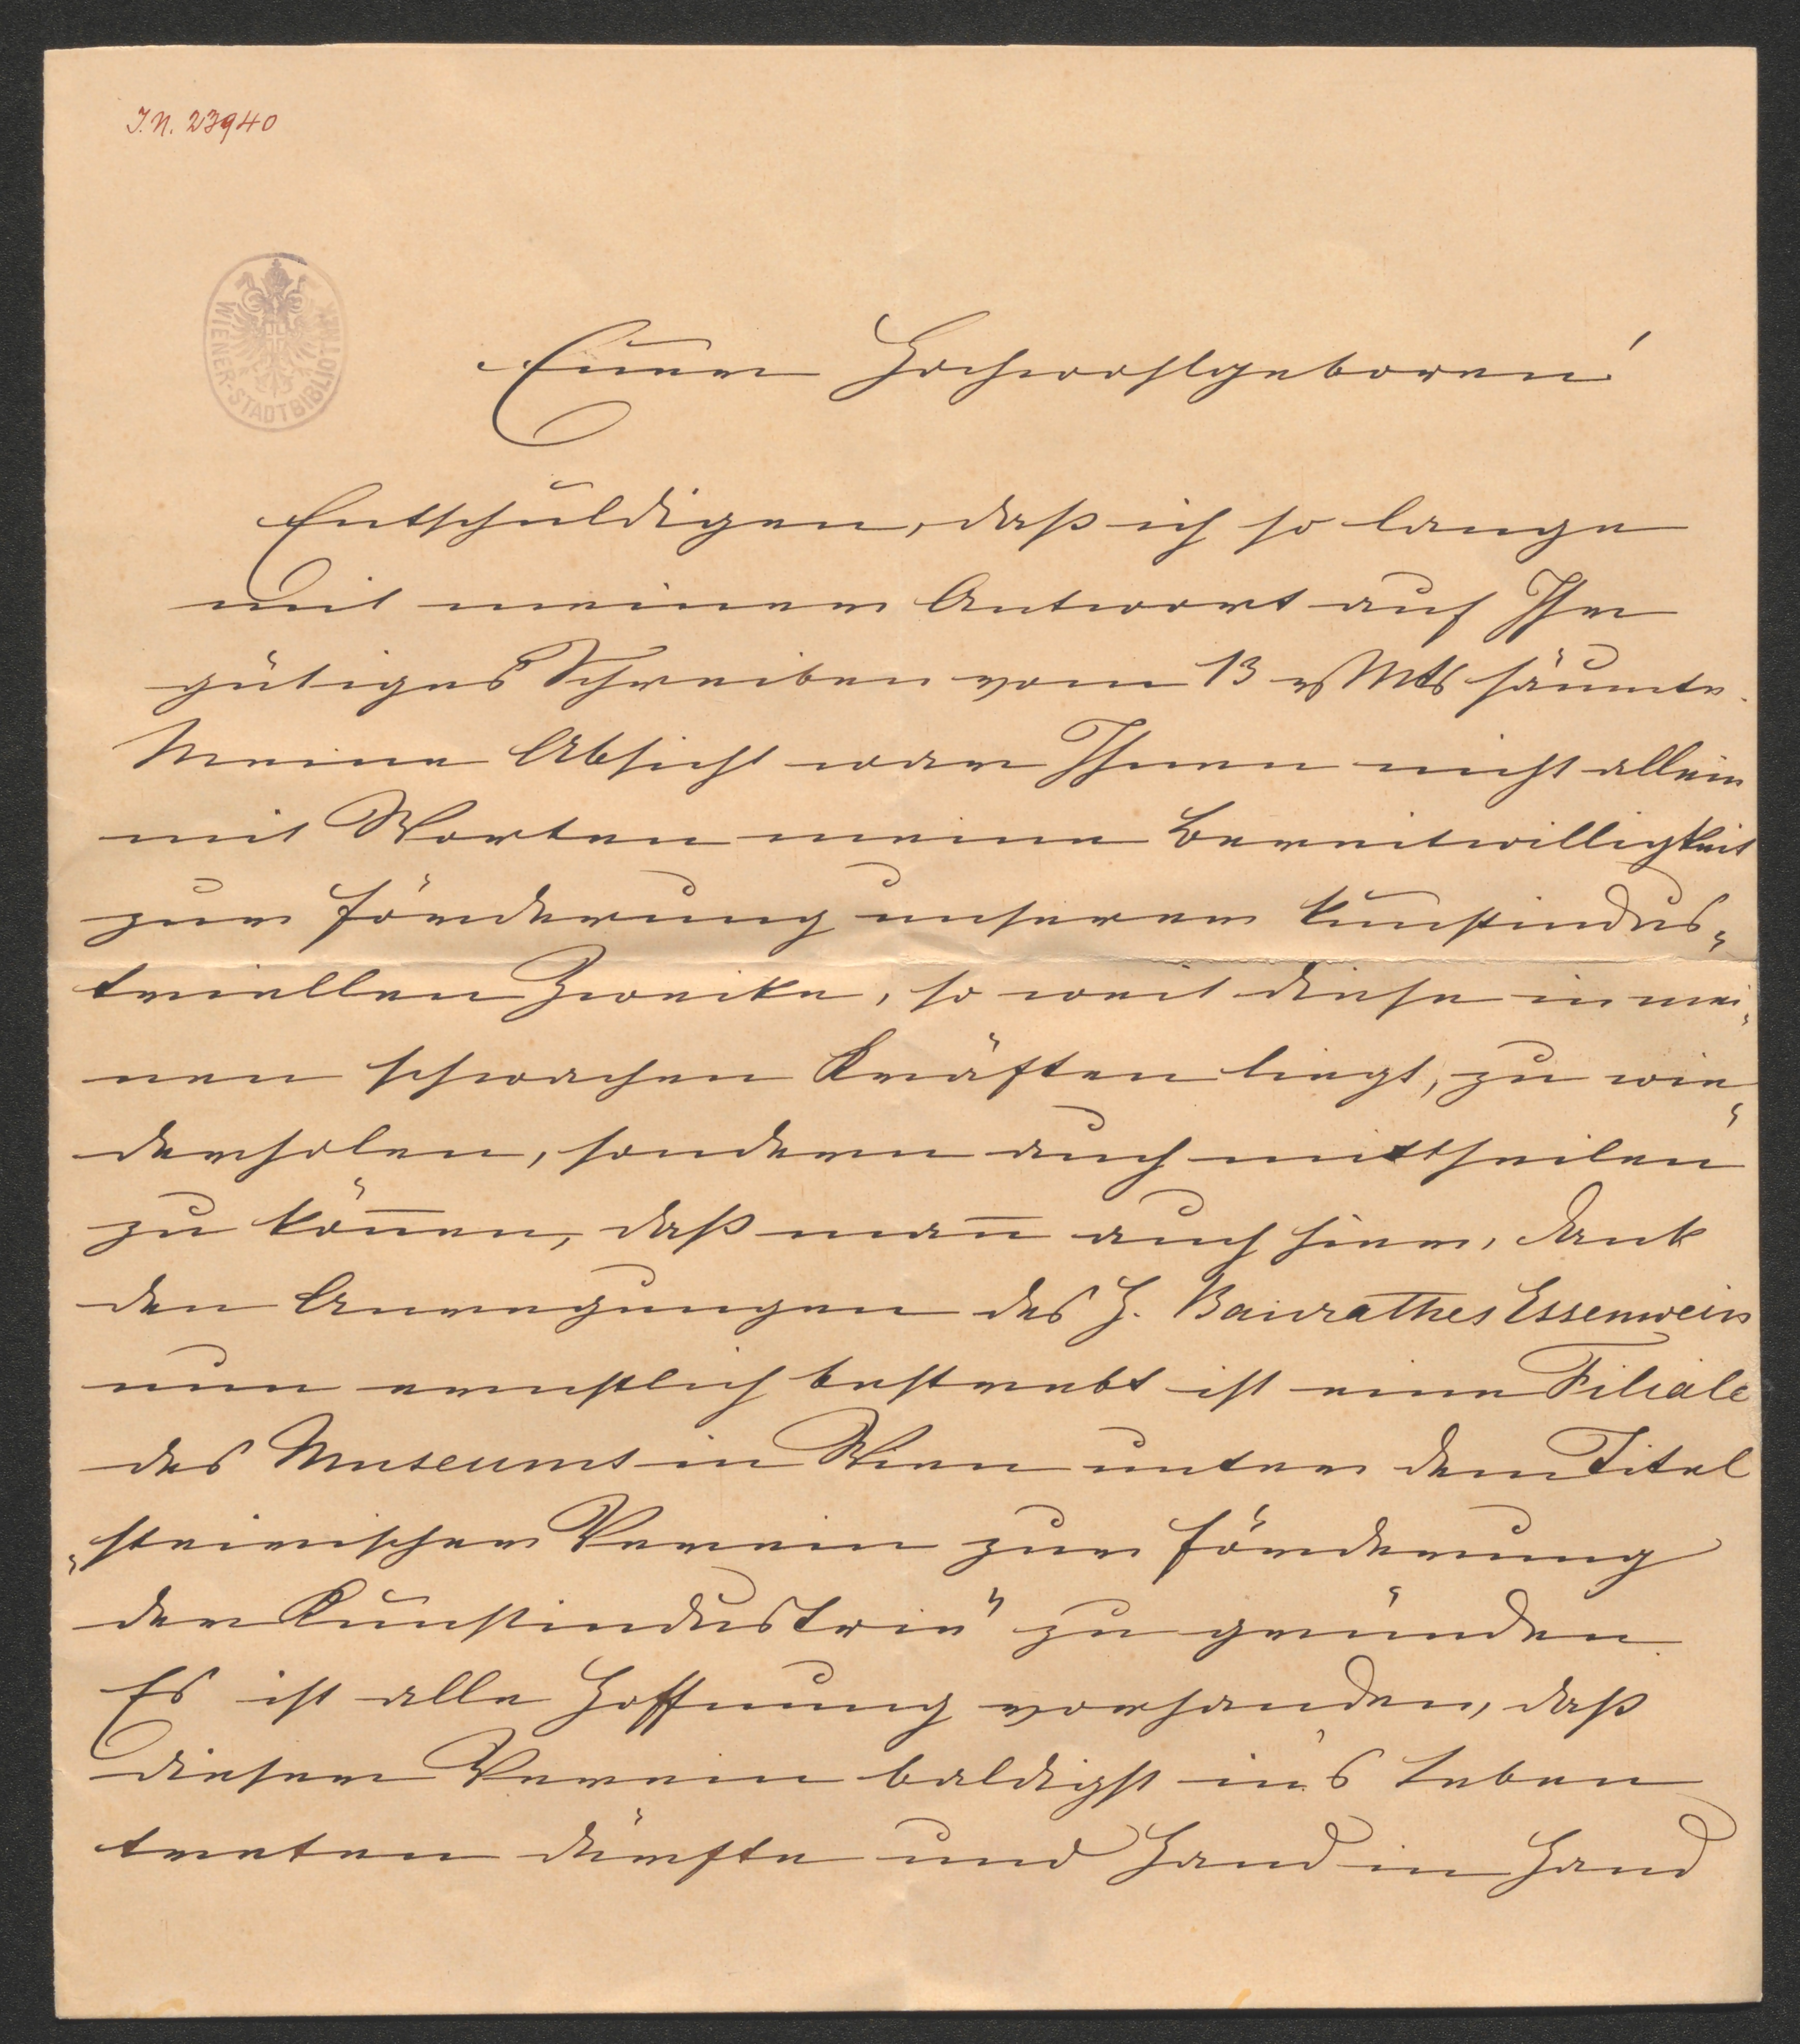 I.N. 23940
WIENER-STADTBIBLIOTHEK
Euer Hochwohlgeboren!
Entschuldigen, daß ich so lange
mit meiner Antwort auf Ihr
gütiges Schreiben vom 13 Mts säumte.
Meine Absicht war Ihnen nicht allein
mit Worten meine Bereitwilligkeit
zur Förderung unserer kunstindus„
triellen Zweike, so weit diese in mei„
nen schwachen Kräften liegt, zu wie„
derholen, sondern auch mittheilen
zu kön̄en, daß man̄ auch hier, Dank
den Anregungen des H. Baurathes Essenwein
nun ernstlich bestrebt ist eine Filiale
des Museums in Wien unter dem Titel
„steirischer Verein zur Förderung
der Kunstindustrie" zu gründen.
Es ist alle Hoffnung vorhanden, daß
dieser Verein baldigst in's Leben
treten dürfte und Hand in Hand